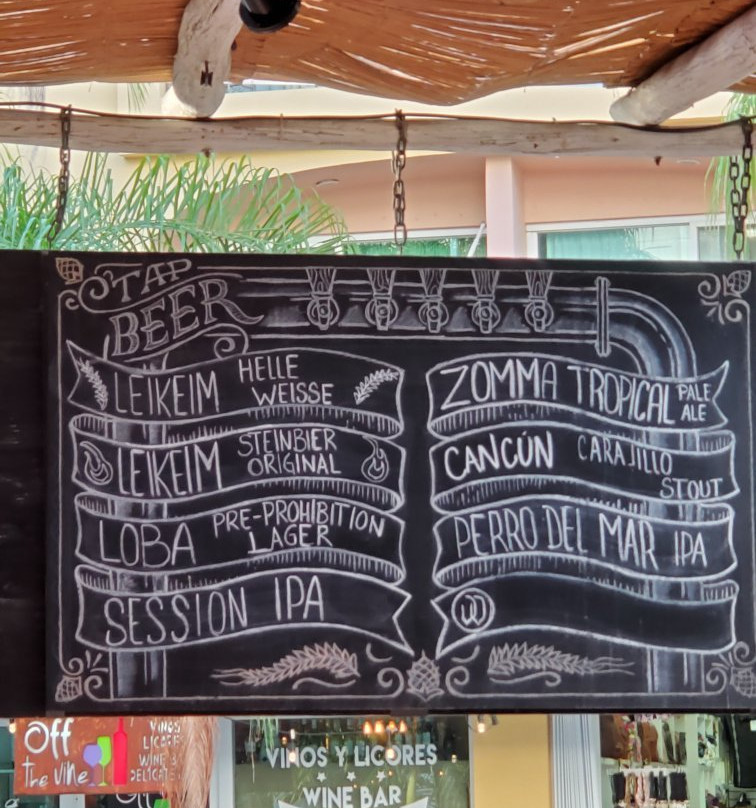 TAP
BEER
LEIKEIM HELLE
WEISSE
LEIKEIM STEINBIER
ORIGINAL
LOBA PRE-PROHIBITION
LAGER
SESSION IPA
ZOMMA TROPICAL PALE
ALE
CANCÚN CARAJILLO
STOUT
PERRO DEL MAR IPA
Off
The Vine
VINOS
WINE
VINOS Y LICORES
WINE BAR
Off